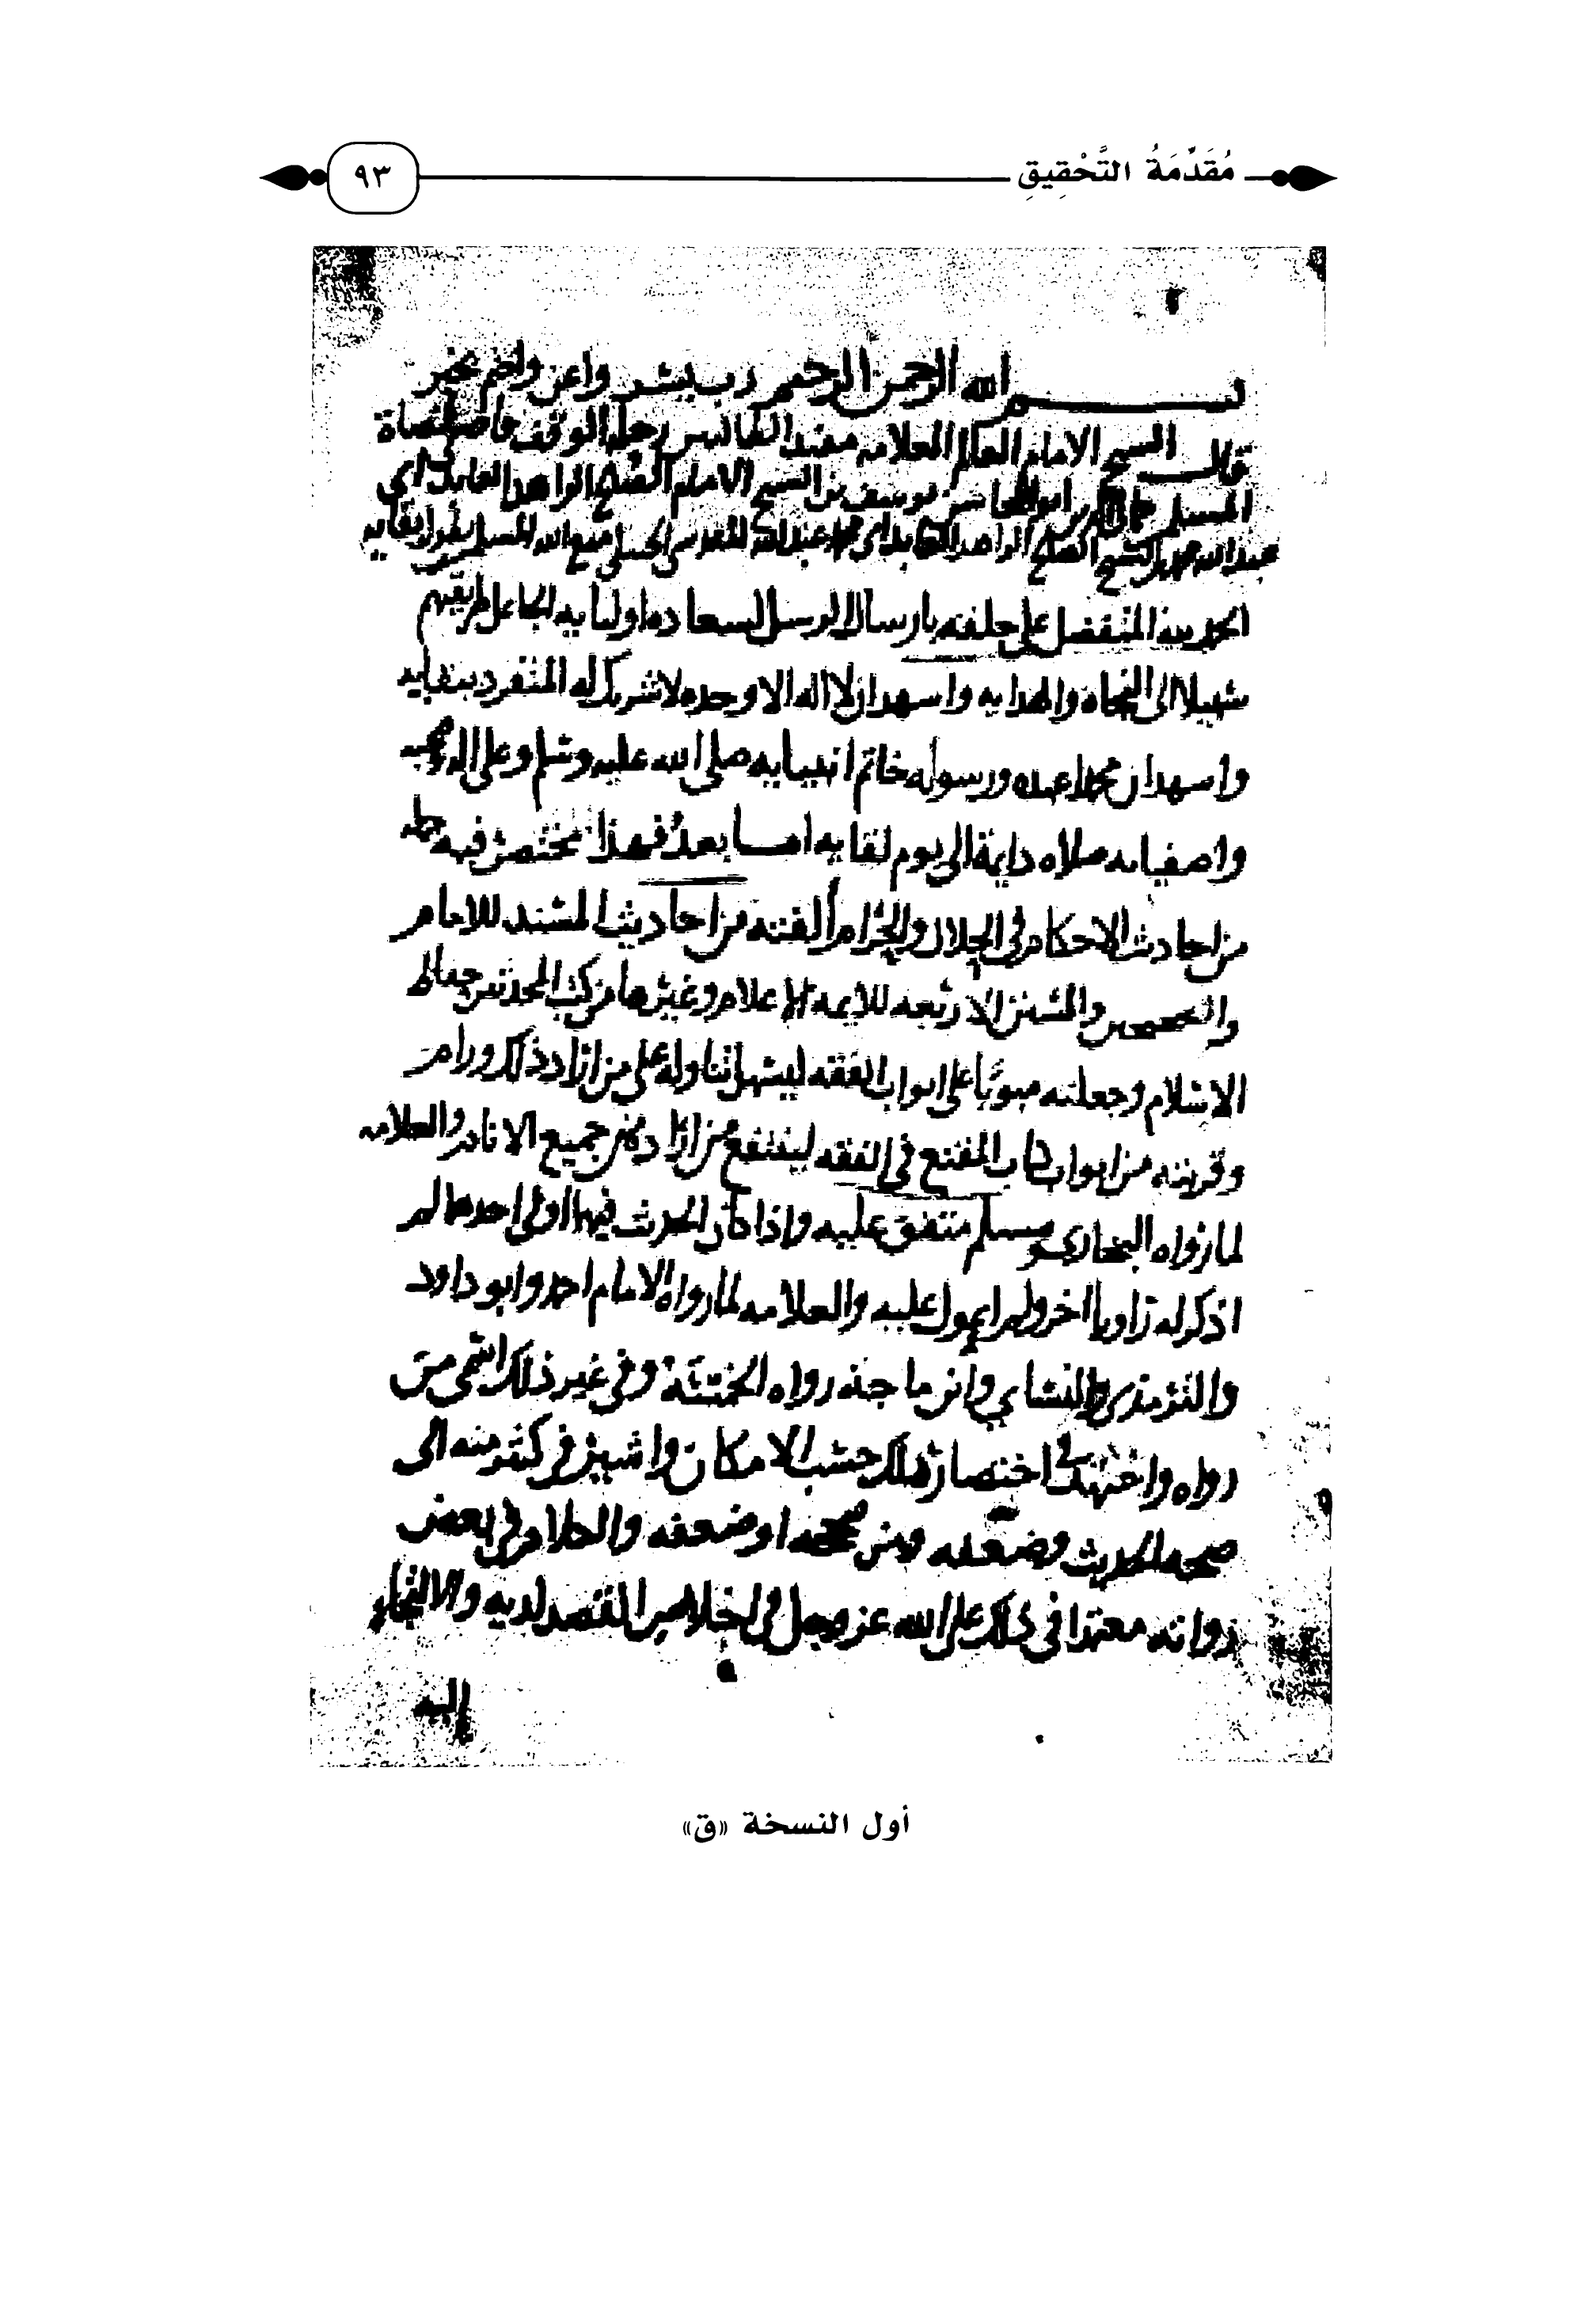 مُقَدِّمَةُ التَّحْقِيقِ
٩٣
بسم الله الرحمن الرحيم رب يسر واعن واختم بخير
قال الشيخ الامام العالم العلامه مفيد الطالبين رحلة الوقت قاضي القضاة
المسلمين جمال الدين ابو المحاسن يوسف بن الشيخ الامام الصالح الزاهد العابد ابي
عبد الله محمد بن الشيخ الصالح الزاهد العابد ابي محمد عبد الله المقدسي الحنبلي متع الله المسلمين بطول بقايه
الحمد لله المتفضل على خلقه بارسال الرسل لسعاده اوليايه الجاعل طريقهم
سبيلا الى النجاه والهدايه واشهد ان لا اله الا وحده لا شريك له المنفرد ببقايه
واشهد ان محمدا عبده ورسوله خاتم انبيايه صلى الله عليه وسلم وعلى اله وصحبه
واصفيايه صلاه دايمة الى يوم لقايه امـا بعد فهذا مختصر فيه جمله
من احاديث الاحكام في الحلال والحرام الفته من احاديث المسند للامام
والصحيحين والسنن الاربعه للايمه الاعلام وغيرها من كتب المحدثين حفاظ
الاسلام وجعلته مبوبًا على ابواب الفقه ليسهل تناوله على من اراد ذلك ورام
وقربته من ابواب كتاب المقنع في الفقه لينتفع من اراده من جميع الانام والعلامه
لما رواه البخاري ومسلم متفق عليه واذا كان الحديث فيهما او في احدهما لم
اذكر له راويا اخر ولم ايمول عليه والعلامه لما رواه الامام احمد وابو داود
والترمذي والنسائي وابن ماجه رواه الخمسة وفي غير ذلك اسمي من
رواه واجتهدت في اختصار ذلك حسب الامكان واشير في كثير منه الى
صحه الحديث وضعفه ومن صححه او ضعفه والكلام في بعض
رواته معتمدا في ذلك على الله عز وجل في اخلاص القصد لديه والالتجاء
اليه
أول النسخة «ق»